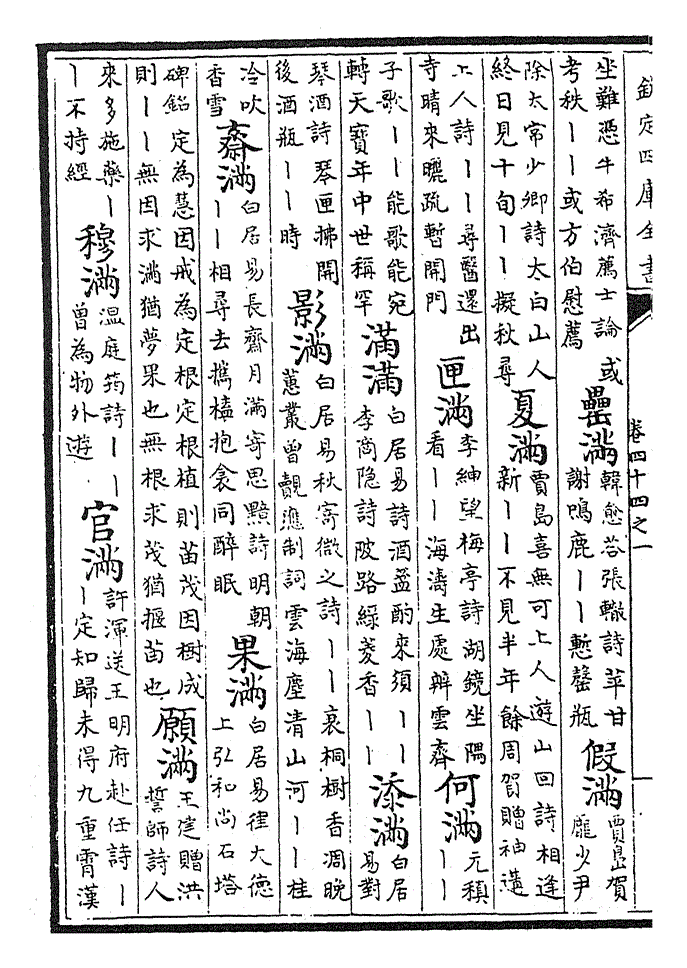 欽定四庫全書
卷四十四之一
坐難憑牛希濟薦士論或
考秩丨丨或方伯慰薦
罍滿
韓愈荅張徹詩苹甘
謝鳴鹿丨丨慙罄瓶
假滿
賈島賀
龐少尹
除太常少卿詩太白山人
終日見十旬丨丨擬秋尋
夏滿
賈島喜無可上人遊山回詩相逢
新丨丨不見半年餘周賀贈神遘
上人詩丨丨尋醫還出
寺晴來曬疏暫開門
匣滿
李紳望梅亭詩湖鏡坐隅
看丨丨海濤生處辨雲齊
何滿
元稹
丨丨
子歌丨丨能歌能宛
轉天寳年中世稱罕
滿滿
白居易詩酒盞酌來須丨丨
李商隐詩陂路綠菱香丨丨
添滿
白居
易對
琴酒詩琴匣拂開
後酒瓶丨丨時
影滿
白居易秋寄微之詩丨丨衰桐樹香凋晚
蕙叢曾覿應制詞雲海塵清山河丨丨桂
冷吹
香雪
齋滿
白居易長齋月滿寄思黯詩明朝
丨丨相尋去攜榼抱衾同醉眠
果滿
白居易律大德
上弘和尚石塔
碑銘定為慧因戒為定根定根植則苗茂因樹成
則丨丨無因求滿猶夢果也無根求茂猶揠苗也
願滿
王建贈洪
誓師詩人
來多施藥丨
丨不持經
穆滿
温庭筠詩丨丨
曾為物外遊
官滿
許渾送王明府赴任詩丨
丨定知歸未得九重霄漢